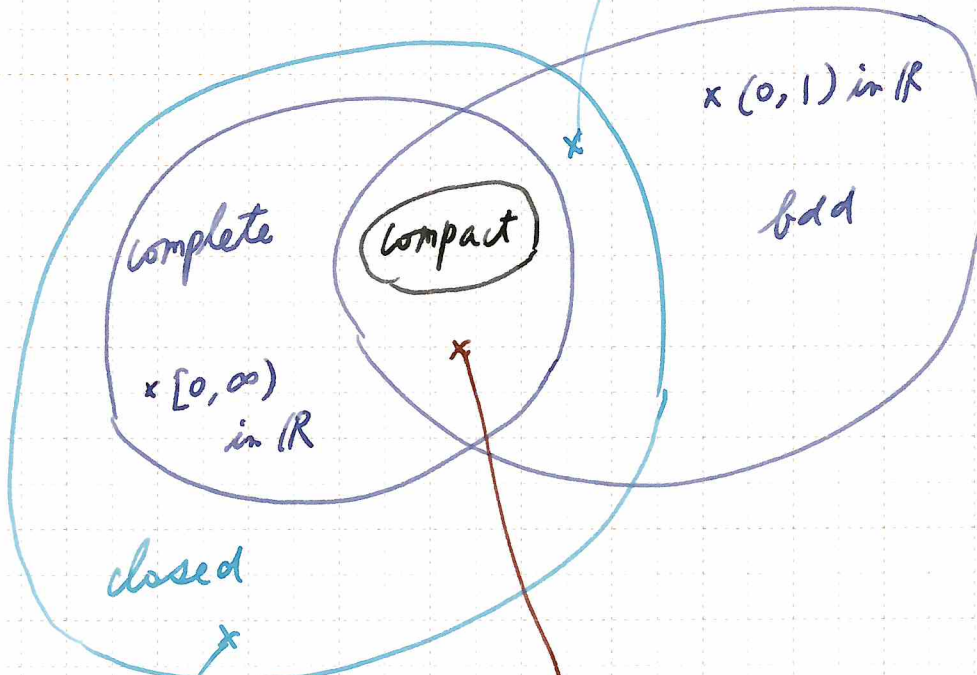 × (0, 1) in ℝ
bdd
complete
compact
× [0, ∞)
in ℝ
closed